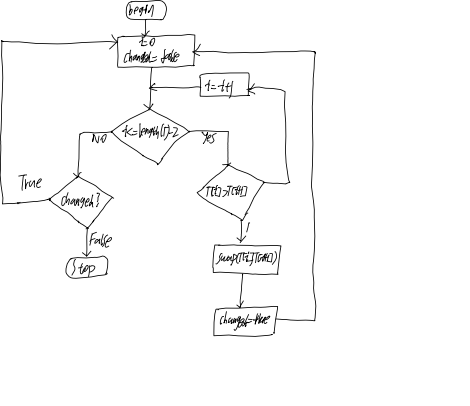 begin
t=0
changed = false
t=t+1
t<=length(T)-2
NO
Yes
True
changed?
T[t]>T[t+1]
False
Stop
swap(T[t],T[t+1])
changed=true